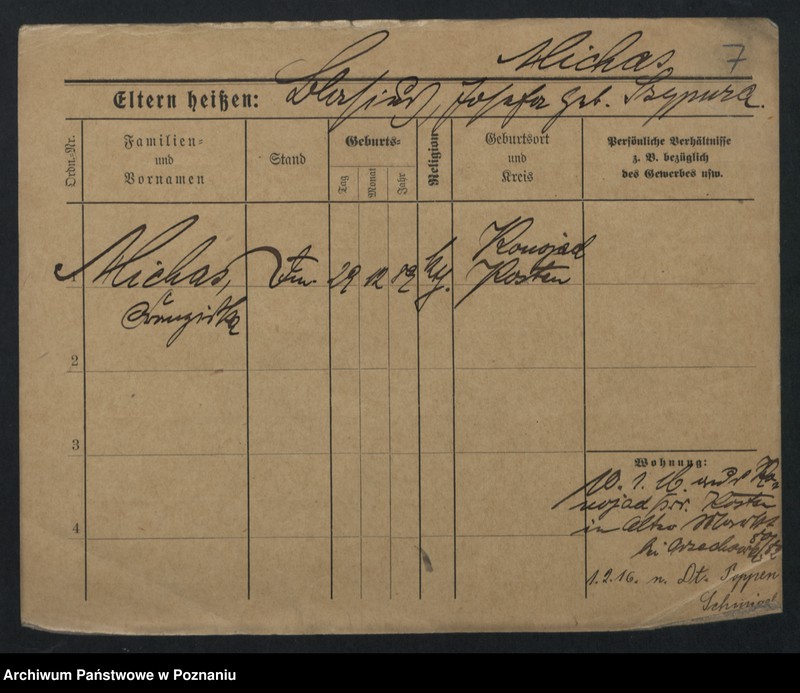 Michas
7
Eltern heißen: Blasius, Josefa geb. Szypura.
Ordn.-Nr.
Familien-
und
Vornamen
Stand
Geburts-
Tag
Monat
Jahr
Religion
Geburtsort
und
Kreis
Persönliche Verhältnisse
z. B. bezüglich
des Gewerbes usw.
1
Michas,
Franziska
29 12 89 kth.
Konojad
Kosten
2
3
4
Wohnung:
10. 1. 16 aus Ko-
nojad Krs. Kosten
in Alter Markt
bei
1.2.16. n. Dt. Poppen
Schmiegel
Archiwum Państwowe w Poznaniu